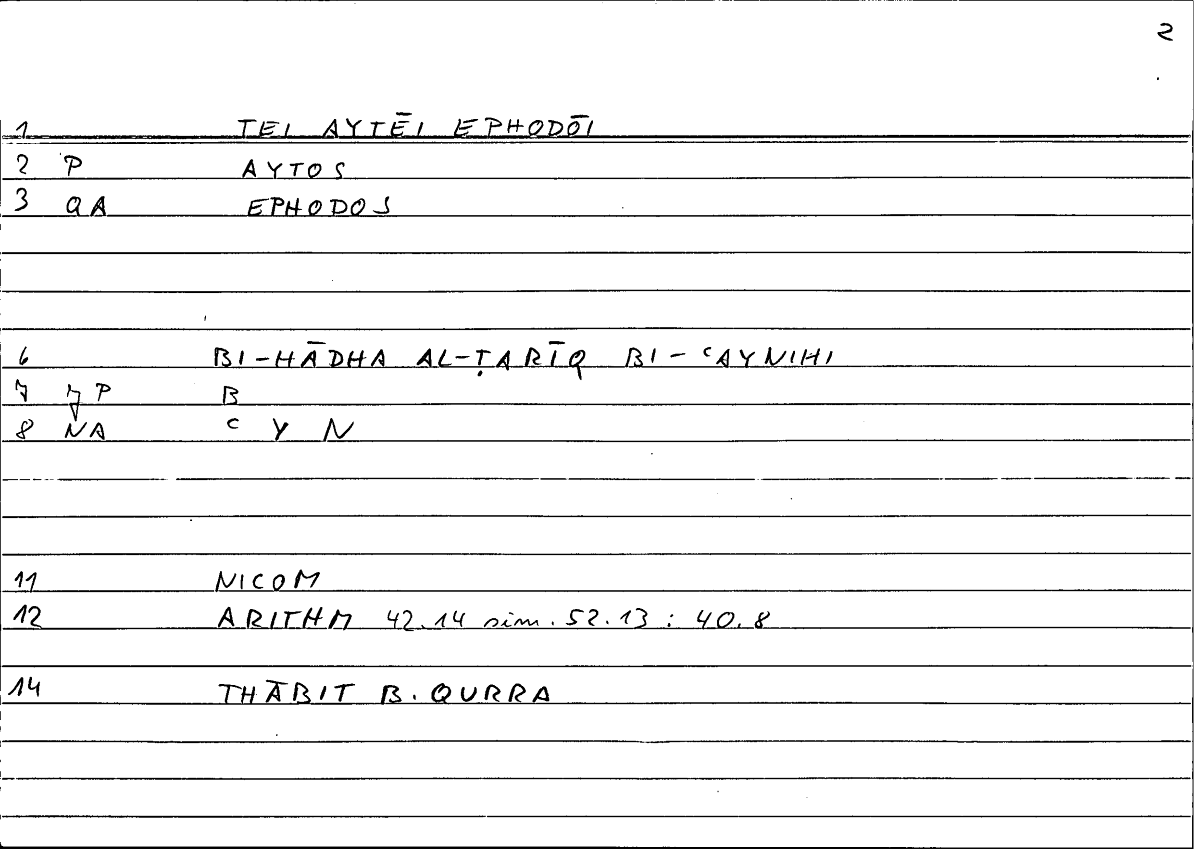 2
1 TEI AYTĒI EPHODŌI
2 P AYTOS
3 QA EPHODOS
6 BI-HĀDHA AL-ṬARĪQ BI-ʿAYNIHI
7 P B
8 NA ʿ Y N
11 NICOM
12 ARITHM 42.14 sim. 52.13 : 40.8
14 THĀBIT B. QURRA